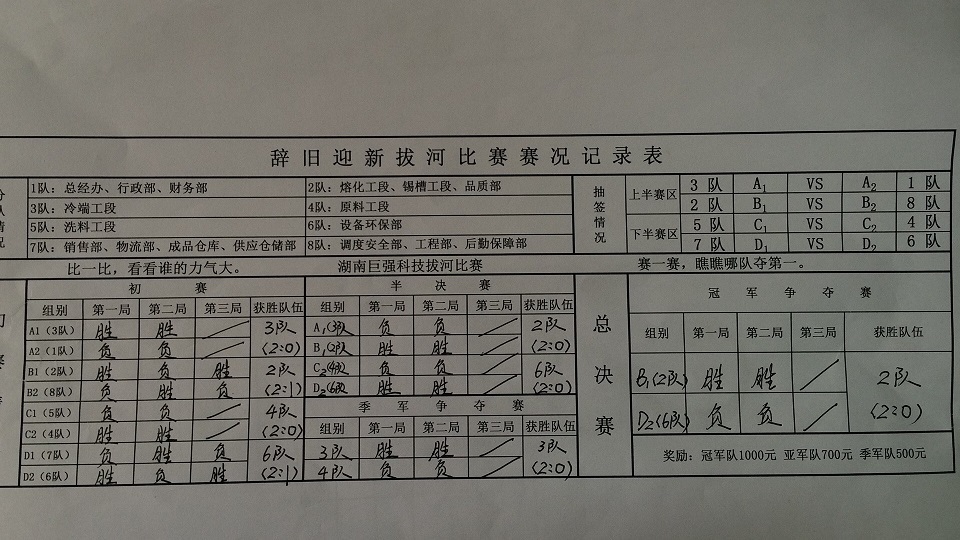 辞旧迎新拔河比赛赛况记录表
1队：总经办、行政部、财务部
2队：熔化工段、锡槽工段、品质部
3队：冷端工段
4队：原料工段
5队：洗料工段
6队：设备环保部
7队：销售部、物流部、成品仓库、供应仓储部
8队：调度安全部、工程部、后勤保障部
抽签情况
上半赛区 3 队 A1 VS A2 1 队
2 队 B1 VS B2 8 队
下半赛区 5 队 C1 VS C2 4 队
7 队 D1 VS D2 6 队
比一比，看看谁的力气大。 湖南巨强科技拔河比赛 赛一赛，瞧瞧哪队夺第一。
初 赛
组别 第一局 第二局 第三局 获胜队伍
A1（3队） 胜 胜 / 3队
A2（1队） 负 负 / (2:0)
B1（2队） 胜 负 胜 2队
B2（8队） 负 胜 负 (2:1)
C1（5队） 负 负 / 4队
C2（4队） 胜 胜 / (2:0)
D1（7队） 负 胜 负 6队
D2（6队） 胜 负 胜 (2:1)
半 决 赛
组别 第一局 第二局 第三局 获胜队伍
A1(3队) 负 负 / 2队
B1(2队) 胜 胜 / (2:0)
C2(4队) 负 负 / 6队
D2(6队) 胜 胜 / (2:0)
季 军 争 夺 赛
组别 第一局 第二局 第三局 获胜队伍
3队 胜 胜 / 3队
4队 负 负 / (2:0)
总决赛
冠 军 争 夺 赛
组别 第一局 第二局 第三局 获胜队伍
B1(2队) 胜 胜 / 2队
D2(6队) 负 负 / (2:0)
奖励：冠军队1000元 亚军队700元 季军队500元